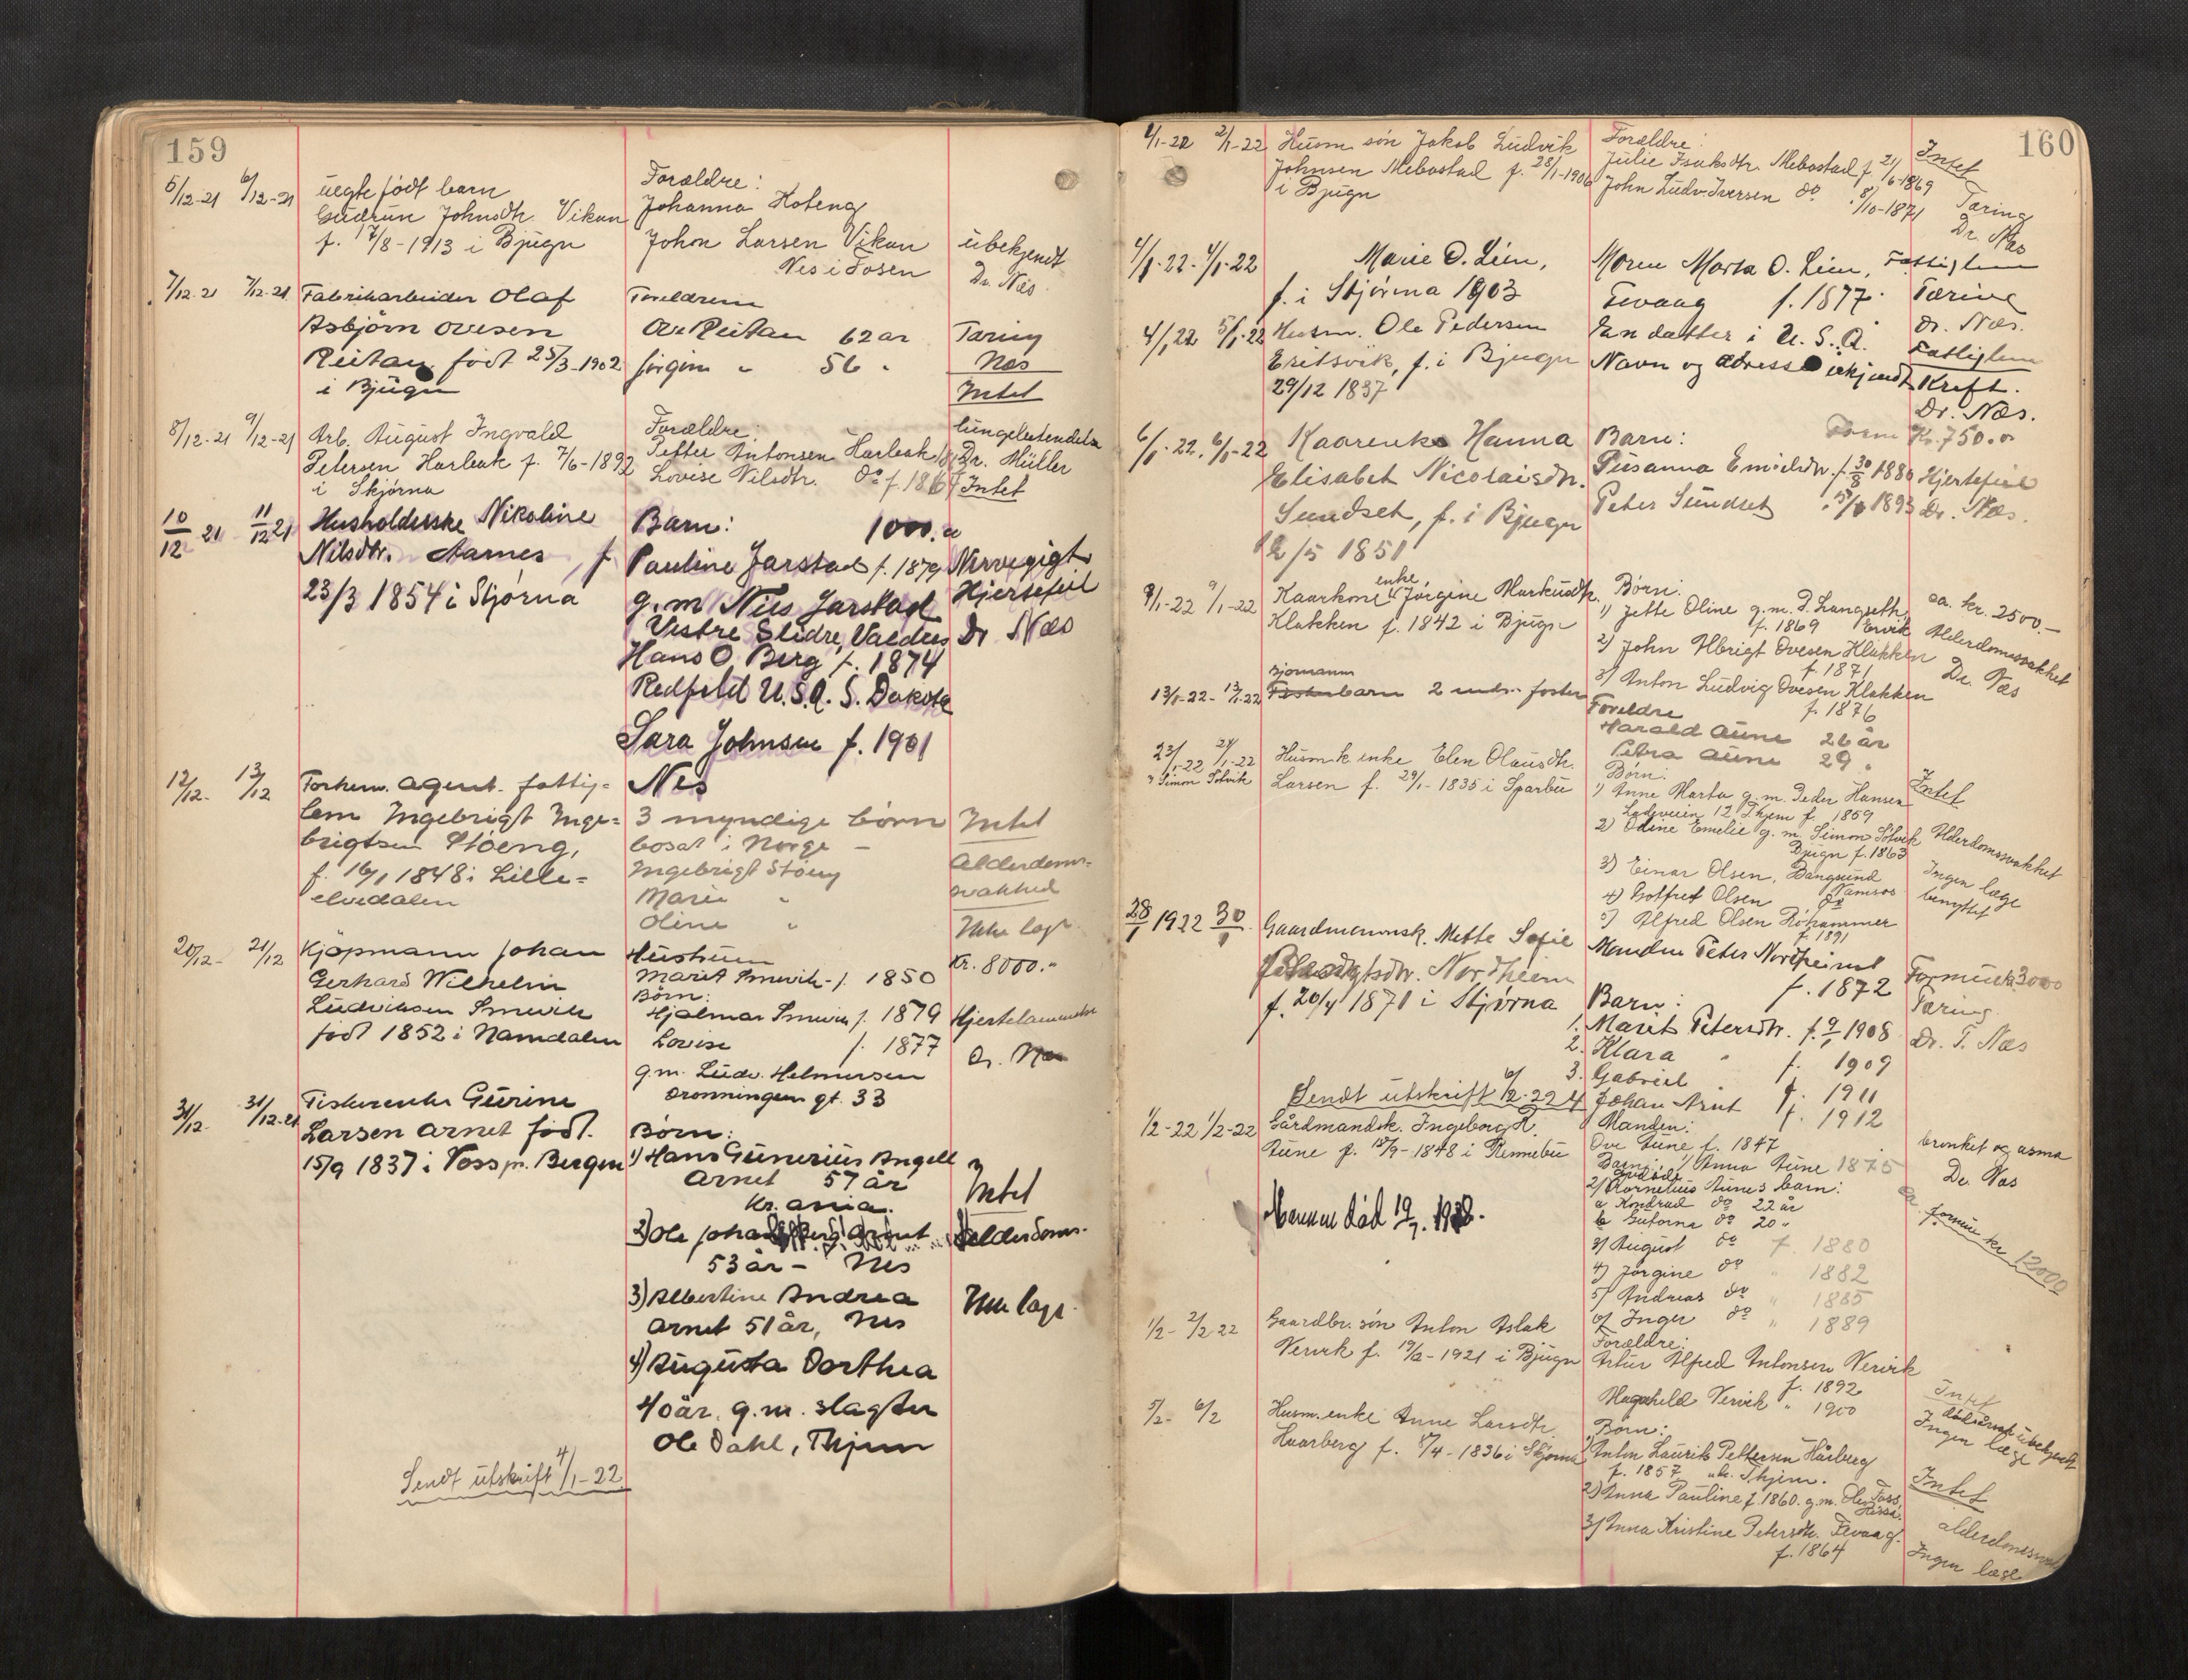 159
5/12-21 6/12-21 uegte født barn
Gudrun Johnsdtr. Vikan
f. 17/8-1913 i Bjugn
Forældre:
Johanna Hoteng
Johon Larsen Vikan
Nes i Fosen
übekjendt
Dr. Næs
7/12-21 7/12-21 Fabrikarbeider Olaf
Asbjørn Ovesen
Reitan født 25/3-1902
i Bjugn
Foreldrene
Ove Reitan 62 ar
Jørgine " 56 "
Tæring
Næs
Intet
8/12-21 9/12-21 Arb. August Ingvald
Petersen Harbak f. 7/6-1892
i Skjørna
Forældre:
Petter Antonsen Harbak
Lovise Nilsdtr. do f. 1867
lungebetendelse
Dr. Müller
Intet
10/12 21 11/12 21 Husholderske Nikoline
Nilsdtr. Aarnes, f
23/3 1854 i Stjørna
Barn: 1000.00
Pauline Jarstad f. 1879
g.m Nils Jarstad
Vestre Slidre, Valdres
Hans O. Berg f. 1874
Redfield U.S.A. S. Dakota
Sara Johnsen f. 1901
Nervegigt
Hjertefeil
Dr Næs
12/12- 13/12 Forhenv. agent. fattig-
lem Ingebrigt Inge-
brigtsen Støeng,
f. 16/1 1848 i Lille-
elvedalen
Nes
3 myndige børn
bosat i Norge -
Ingebrigt Støeng
Marie "
Oline "
Intet
Alderdoms-
svakhed
Ikke læge
20/12- 21/12 Kjøpmann Johan
Gerhard Wilhelm
Ludviksen Smevik
født 1852 i Namdalen
Hustruen
Marit Smevik - f. 1850
Børn:
Hjalmar Smevik f. 1879
Lovise f. 1877
g.m. Ludv. Helmersen
Dronningens gt. 33
Kr. 8000.-
Hjertelammelse
Dr. Næs
31/12- 31/12-21 Fiskerenke Gurine
Larsen Arnet født.
15/9 1837 i Voss pr. Bergen
Børn:
1) Hans Gunerius Angell
Arnet 57 år
Kr.ania.
2) Ole Johan Arnet
53 år - Nes
3) Albertine Andrea
Arnet 51 år, Nes
4) Augusta Dorthea
40 år. g.m. slagter
Ole Dahl, Thjem
Intet
Alderdoms-
Ikke læge
Sendt utskrift 4/1-22
160
1/1-22 2/1-22 Husm søn Jakob Ludvik
Johnsen Mebostad f. 28/1-1906
i Bjugn
Forældre:
Julie Isaksdtr. Mebostad f. 21/6-1869
John Ludv. Iversen do 8/10-1871
Intet
Tæring
Dr. Næs
4/1-22- 4/1-22 Marie O. Lien,
f. i Stjørna 1903
Moren Marta O. Lien,
Fevaag f. 1877.
Fattiglem
Tæring
Dr. Næs.
4/1 22 5/1-22 Husm. Ole Pedersen
Eritsvik, f. i Bjugn
29/12 1837
En datter i U.S.A.
Navn og adresse ukjendt
Fattiglem
Kreft.
Dr. Næs.
6/1-22. 6/1-22 Kaarenke Hanna
Elisabet Nicolaisdtr.
Sundset, f. i Bjugn
12/5 1851
Barn:
Susanna Emilsdtr. f. 30/8 1880
Peter Sundset 1893
Form Kr. 750.00
Hjertefeil
Dr. Næs.
9/1-22 9/1-22 Kaarkone enke, Jørgine Markusdtr.
Klakken f. 1842 i Bjugn
Børn:
1) Jette Oline g.m. P. Langseth
f. 1869 Ervik
2) John Albrigt Ovesen Klakken
f. 1871
3) Anton Ludvig Ovesen Klakken
f. 1876
ca. kr. 2500.-
Alderdomssvakhet
Dr. Næs
13/1-22- 13/1-22 Bjornann
barn 2 mdr. foster
Foreldre
Harald Aune 26 år
Petra Aune 29 "
23/1-22 24/1-22 Husmk enke Elen Olausdtr.
v Simon Solvik Larsen f. 29/1-1835 i Sparbu
Børn:
1) Anne Marta g.m. Peder Hansen
Ladeveien 12 Thjem f. 1859
2) Odine Emelie g.m. Simon Solvik
Bjugn f. 1863
3) Einar Olsen, Bangsund
4) Gotfred Olsen, Namsos
do
5) Alfred Olsen
f. 1891
Intet
Alderdomssvakhet
Ingen læge
benyttet
28/1 1922 30/1 Gaardmannsk. Mette Sofie
Nordheim
f. 20/4 1871 i Stjørna
Manden Peter Nordheim
f. 1872
Barn:
1. Marit Petersdtr. f. 1908
2. Klara " f. 1909
3. Gabriel f. 1911
4 Johan Arnt f. 1912
Formue 3000
Tæring
Dr. T. Næs
Sendt utskrift 6/2-22
1/2-22 1/2-22 Gårdmandsk. Ingeborg K.
Aune f. 18/9-1848 i Rennebu
Mannen død 19/7. 1928.
Manden:
Ove Aune f. 1847
Barn: 1) Anna Aune 1875
2) Kornelius Aunes barn:
a Konrad do 22 år
b Guforna do 20 "
3) August do f. 1880
4) Jørgine do " 1882
5) Andreas do " 1885
6) Inger do " 1889
bronket og asma
Dr. Næs
formue kr 12000
1/2- 2/2 22 Gaardbr. søn Anton Aslak
Vervik f. 19/12-1921 i Bjugn
Forældre:
Artur Alfred Antonsen Vervik
f. 1892
Magnhild Vervik " 1900
Intet
dødsårsak übekjendt
Ingen læge
5/2- 6/2 Husm. enke Anne Larsdtr.
Haarberg f. 8/4-1836 i Skjørna
Børn:
1) Anton Laurits Pettersen Hårberg
f. 1857 Thjem.
2) Anna Pauline f. 1860. g.m. Ole Foss,
Rissa.
3) Anna Kristine Petersdtr. Fevaag.
f. 1864
Intet
alderdomssvakhet
Ingen læge